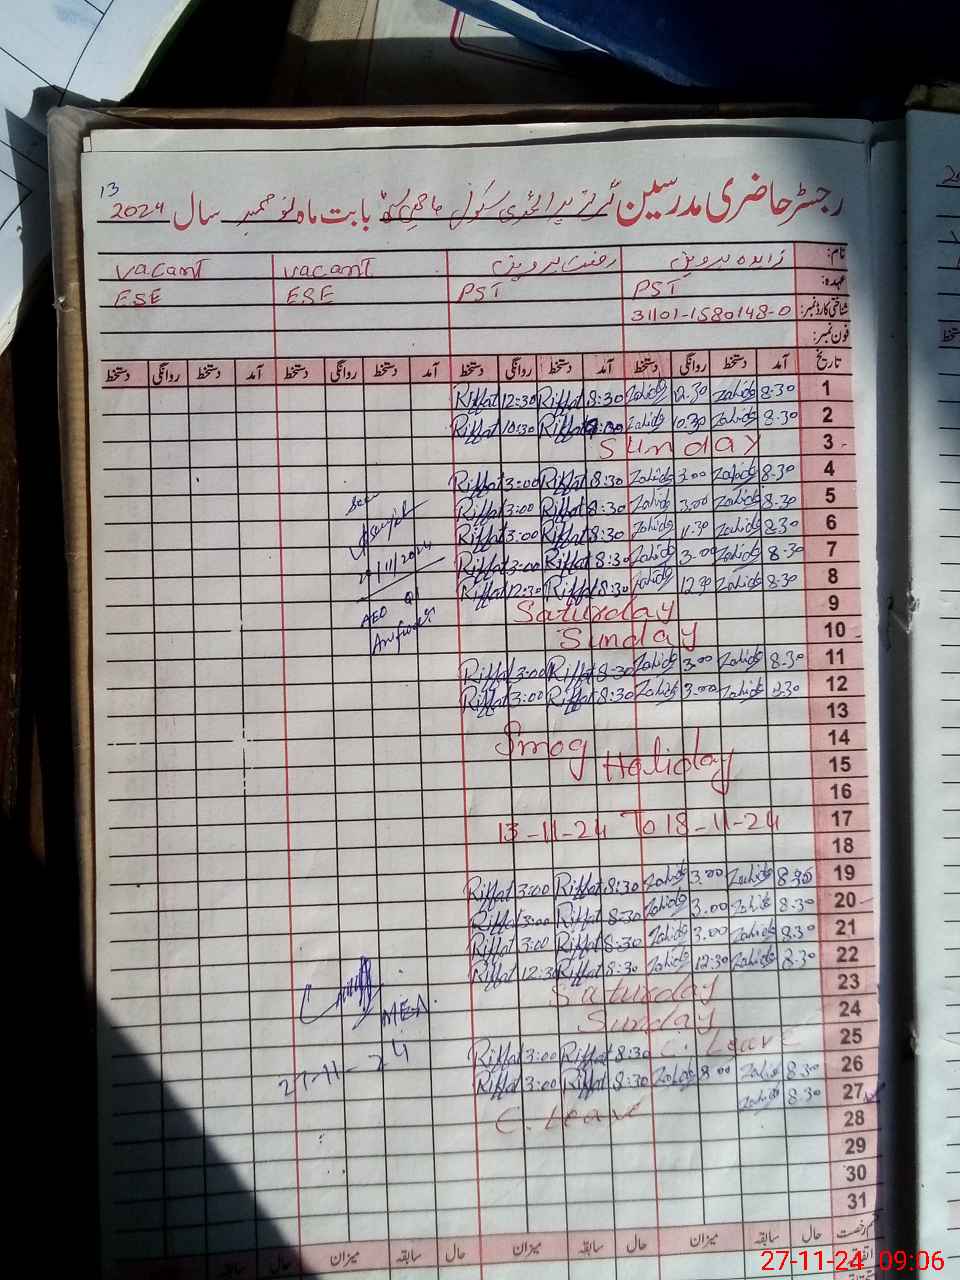 رجسٹر حاضری مدرسین گرلز پرائمری سکول بابت ماہ نومبر سال 2024
13
نام: زاہدہ پروین رفعت پروین vacant vacant
عہدہ: PST PST ESE ESE
شناختی کارڈ نمبر: 31101-1580148-0
فون نمبر:
تاریخ آمد دستخط روانگی دستخط آمد دستخط روانگی دستخط آمد دستخط روانگی دستخط آمد دستخط روانگی دستخط
1 8.30 Zahida 12.30 Zahida 8:30 Riffat 12:30 Riffat
2 8.30 Zahida 10.30 Zahida Riffat 10:30 Riffat
3 Sunday
4 8.30 Zahida 3.00 Zahida 8:30 Riffat 3:00 Riffat
5 8.30 Zahida 3.00 Zahida 8:30 Riffat 3:00 Riffat
6 8.30 Zahida 11.30 Zahida 8:30 Riffat 3:00 Riffat
7 8.30 Zahida 3.00 Zahida 8:30 Riffat 3:00 Riffat
8 8.30 Zahida 12.30 Zahida 8:30 Riffat 12:30 Riffat
9 Saturday
10 Sunday
11 8.30 Zahida 3.00 Zahida 8:30 Riffat 3:00 Riffat
12 8.30 Zahida 3.00 Zahida 8:30 Riffat 3:00 Riffat
13
14 Smog
15 Holiday
16
17 13-11-24 To 18-11-24
18
19 8.30 Zahida 3.00 Zahida 8:30 Riffat 3:00 Riffat
20 8.30 Zahida 3.00 Zahida 8:30 Riffat 3:00 Riffat
21 8.30 Zahida 3.00 Zahida 8:30 Riffat 3:00 Riffat
22 8.30 Zahida 12.30 Zahida 8:30 Riffat 12:30 Riffat
23 Saturday
24 Sunday
25 C. Leave 8:30 Riffat 3:00 Riffat
26 8.30 Zahida Zahida 8:30 Riffat 3:00 Riffat
27 8.30 Zahida C. Leave
28
29
30
31
See
AEO
MEA
27-11-24
حال سابقہ میزان حال سابقہ میزان حال سابقہ میزان حال
27-11-24 09:06